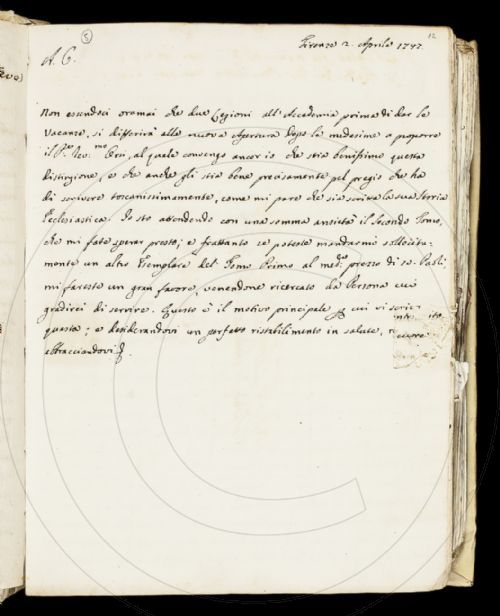 5
12
Firenze 2. Aprile 1747.
A. C.
Non essendoci oramai che due Legioni all' Accademia prima di dar le
Vacanze, si differirà alla nuova Apertura dopo le medesime a proporre
il P.re Rev.mo Orsi, al quale convengo ancor io che stia benissimo questa
distinzione, e che anche gli stia bene precisamente pel pregio che ha
di scrivere toscanissimamente, come mi pare che sia scritta la sua Storia
Ecclesiastica. Io sto attendendo con una somma ansietà il Secondo Tomo,
che mi fate sperar presto; e frattanto se poteste mandarmi sollecita-
mente un altro Esemplare del Tomo Primo al med.o prezzo di 20. Paoli,
mi fareste un gran favore, venendone ricercato da Persona cui
gradirei di servire. Questo è il motivo principale per cui vi scrivo
questa; e desiderandovi un perfetto ristabilimento in salute,
abbracciandovi